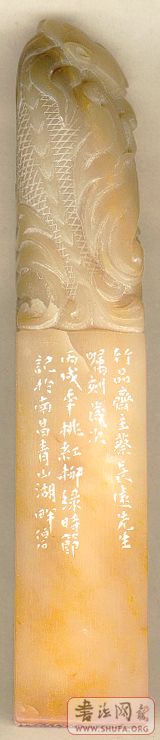 竹品齋主蔡吴遠先生
嘱刻歲次
丙戌年桃紅柳綠時節
記於南昌青山湖畔
书法网
WWW.SHUFA.ORG